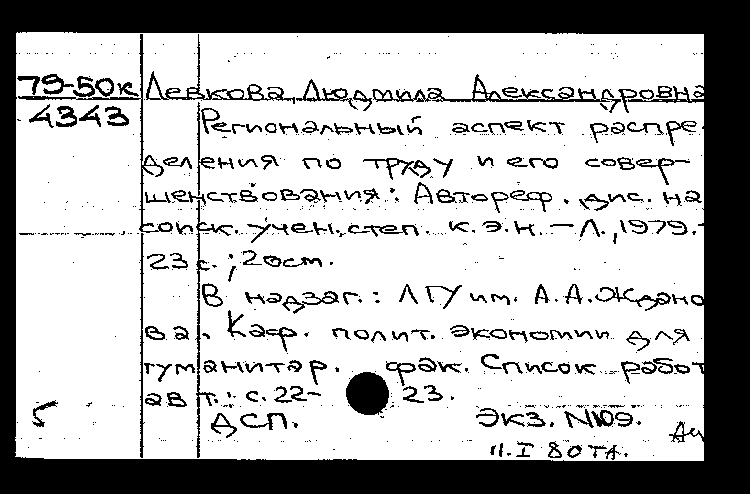 79-50к Левкова, Людмила Александровна
4343 Региональный аспект распре-
деления по труду и его совер-
шенствования: Автореф. дис. на
соиск. учен. степ. к.э.н. - Л., 1979. -
23 с.; 20 см.
В надзаг.: ЛГУ им. А.А. Ждано
ва. Каф. полит. экономии для
гуманитар. фак. Список работ
авт.: с. 22-23.
5 ДСП. Экз. N109.
11.I 80